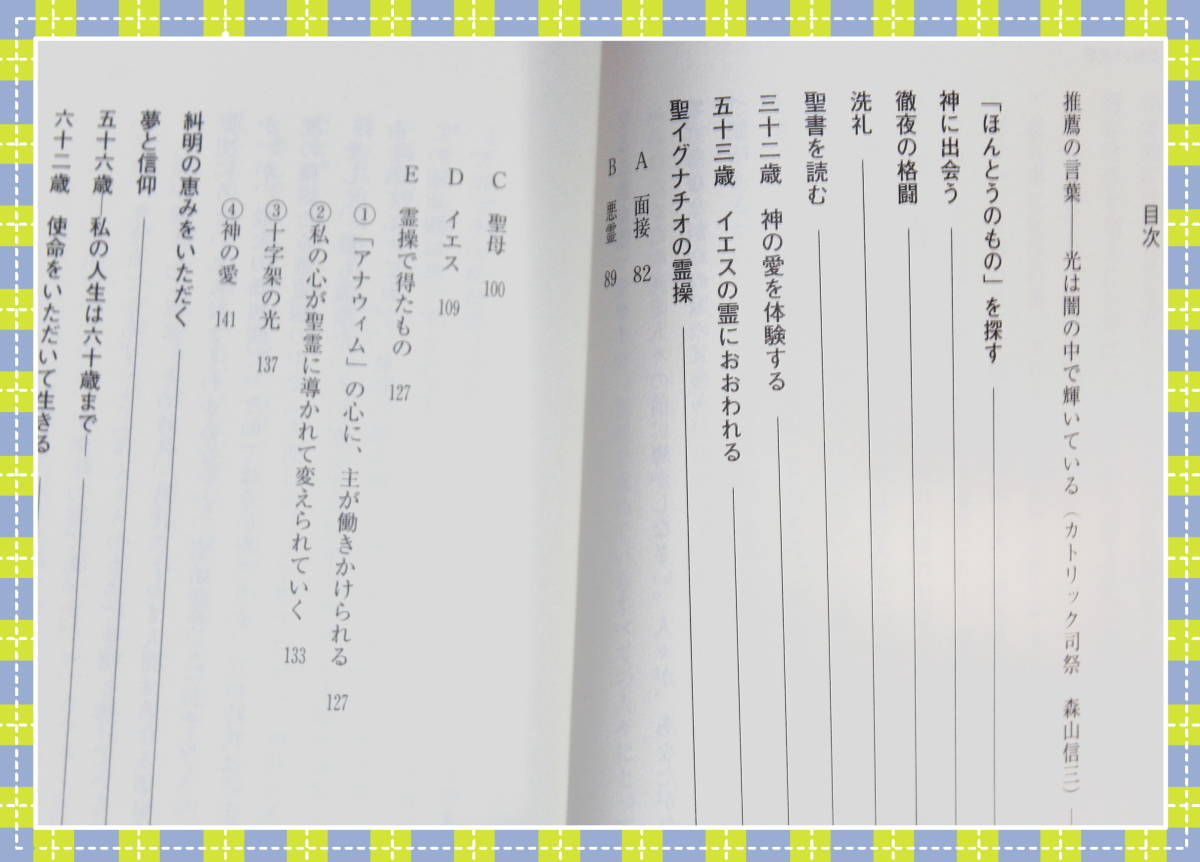 目次
推薦の言葉――光は闇の中で輝いている（カトリック司祭　森山信三）―
「ほんとうのもの」を探す
神に出会う
徹夜の格闘
洗礼
聖書を読む
三十二歳　神の愛を体験する
五十三歳　イエスの霊におおわれる
聖イグナチオの霊操
A　面接　82
B　悪霊　89
C　聖母　100
D　イエス　109
E　霊操で得たもの　127
①「アナウィム」の心に、主が働きかけられる　127
②私の心が聖霊に導かれて変えられていく　133
③十字架の光　137
④神の愛　141
糾明の恵みをいただく
夢と信仰
五十六歳―私の人生は六十歳まで―
六十二歳　使命をいただいて生きる